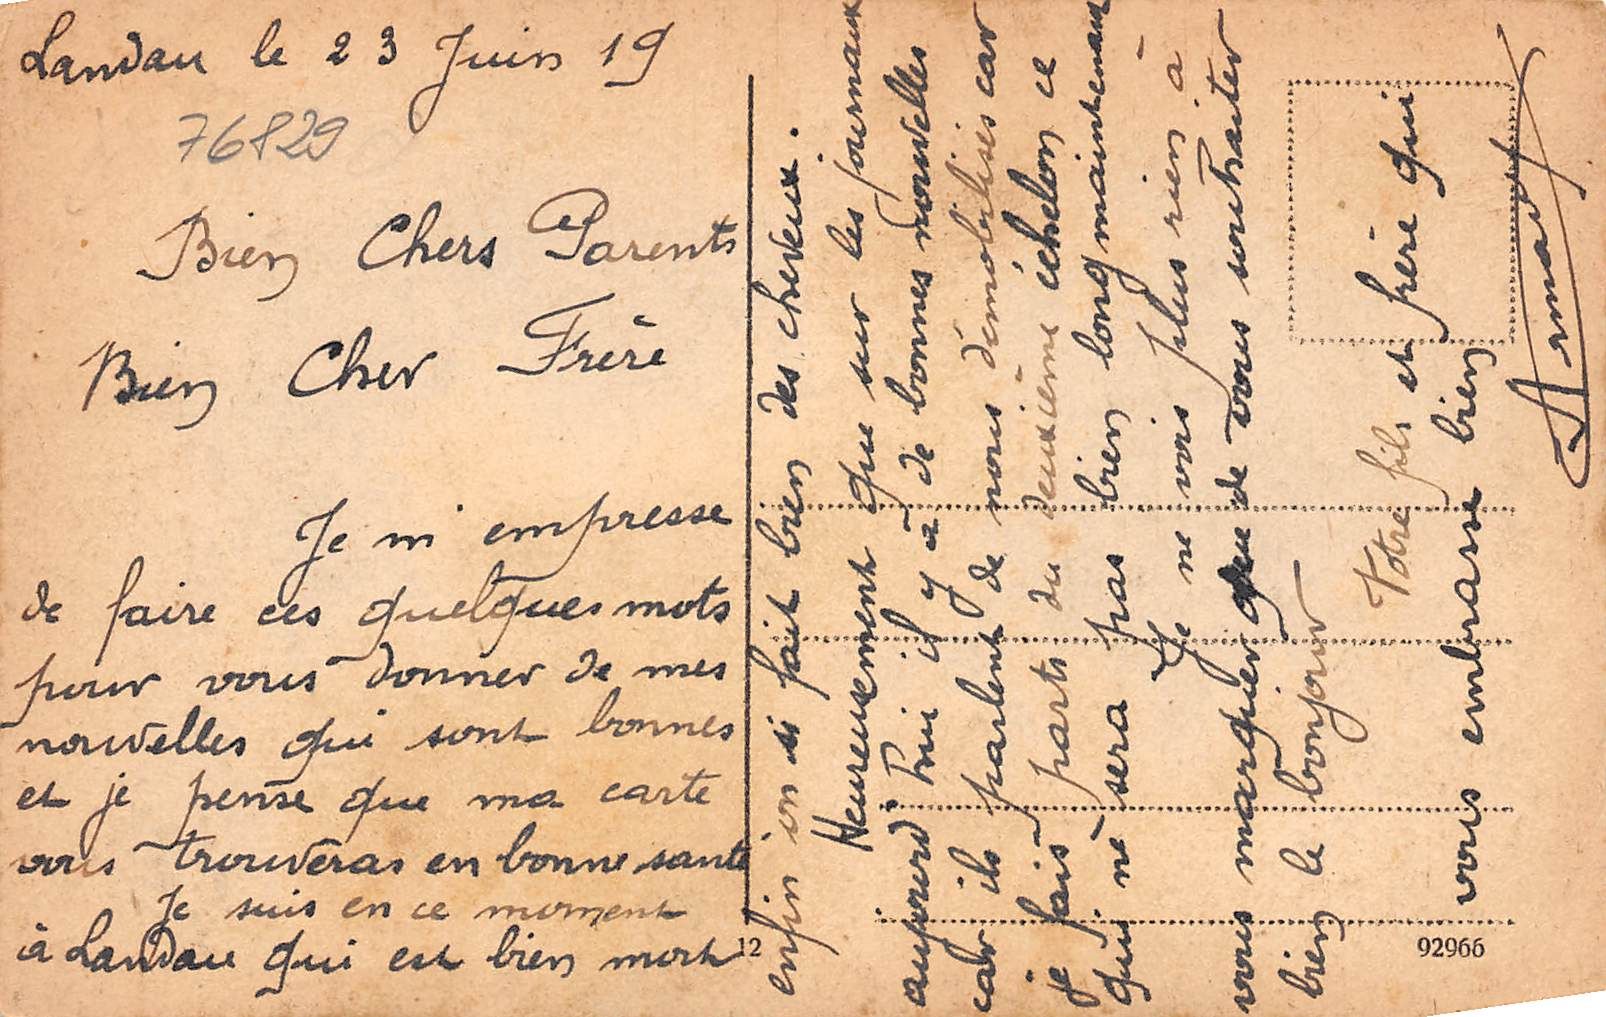 Landau le 23 Juin 19
76829
Bien Chers Parents
Bien Cher Frère
Je m'empresse
de faire ces quelques mots
pour vous donner de mes
nouvelles qui sont bonnes
et je pense que ma carte
vous trouveras en bonne santé
Je suis en ce moment
à Landau qui est bien mort
enfin on si fait bien des cheveux.
Heureusement que sur les journaux
aujourd'hui il y à de bonnes nouvelles
car ils parlent de nous démobilisés car
je fais parts du deuxième échelon ce
qui ne sera pas bien long maintenant
Je ne vois plus rien à
vous marquier que de vous souhaiter
bien le bonjour
Votre fils et frère qui
vous embrasse bien
Armand
12
92966